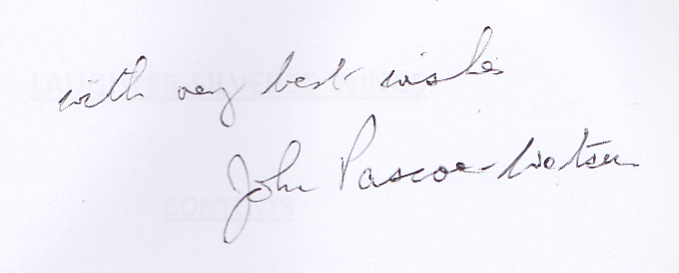 with very best wishes
John Pascoe-Watson
CONTENTS